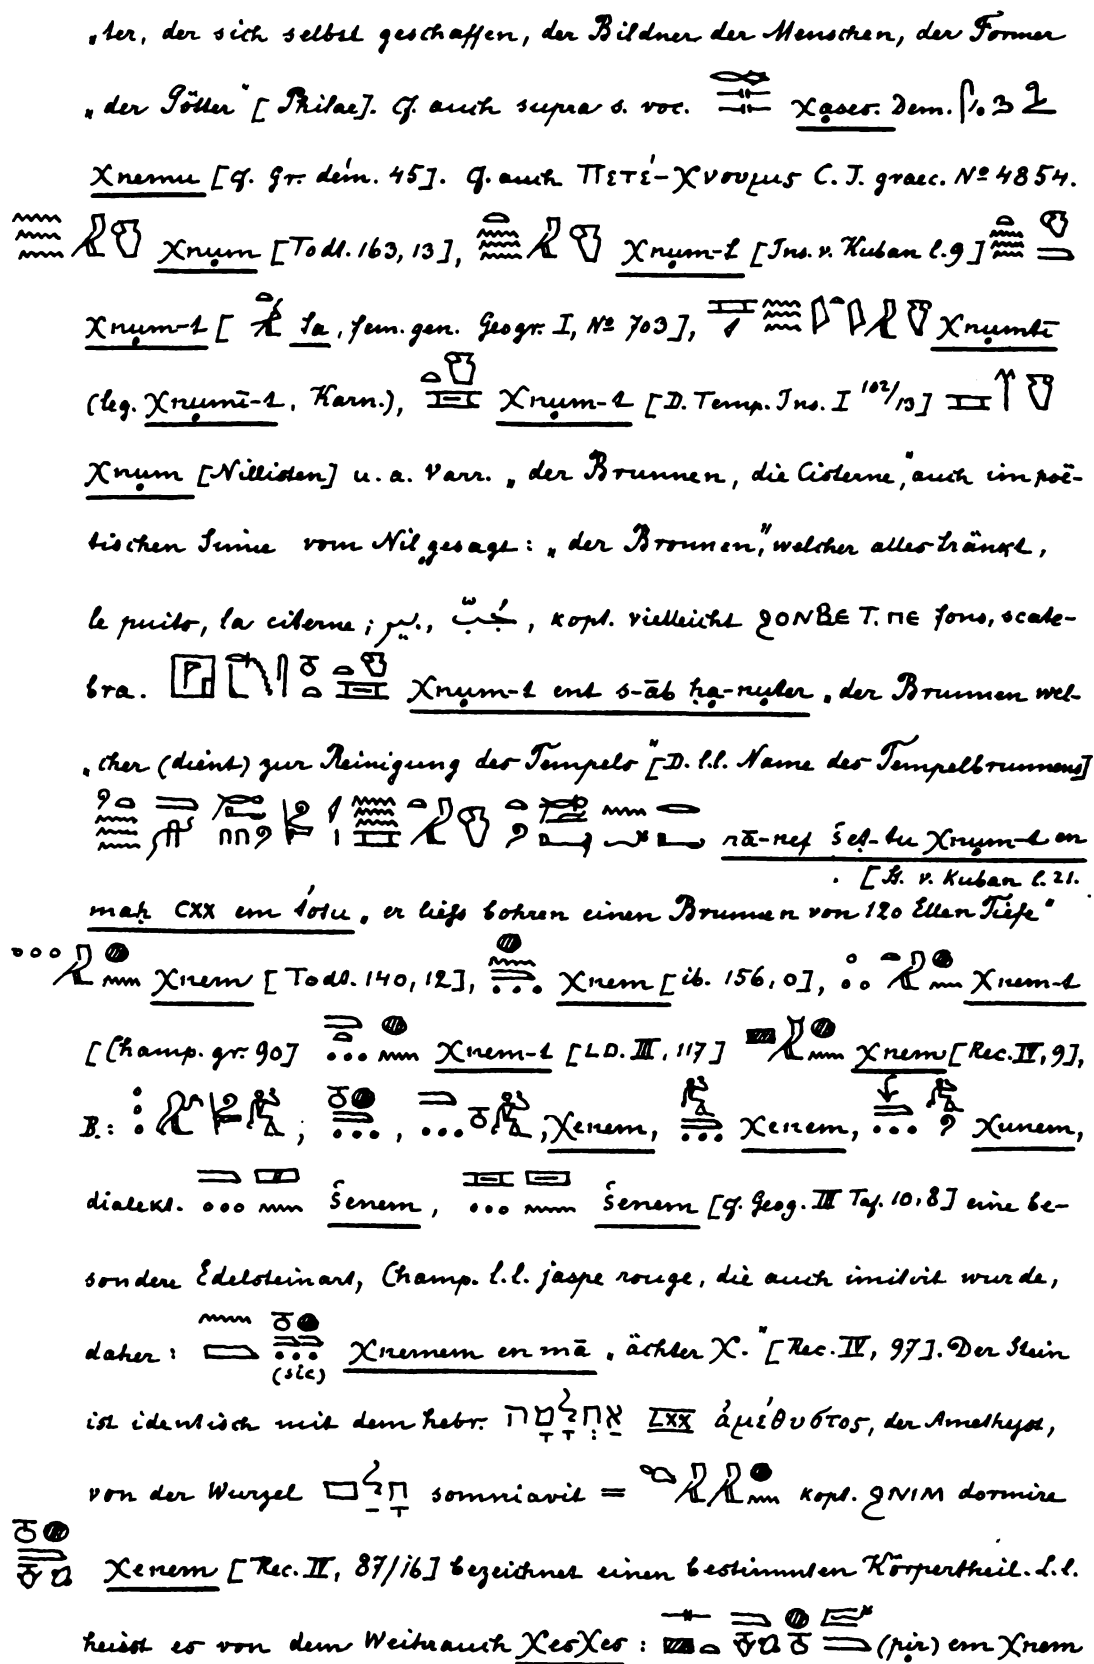 „ter, der sich selbst geschaffen, der Bildner der Menschen, der Former
„der Götter“ [Philae]. Cf. auch supra s. voc. χạses. Dem.
χnemu [cf. Gr. dém. 45]. Cf. auch Πετέ-Χνουμις C. I. graec. Nº 4854.
χnụm [Todt. 163, 13], χnụm-t [Ins. v. Kuban l. 9]
χnụm-t [ ta, fem. gen. Geogr. I, Nº 703], χnụmtī
(leg. χnụmī-t, Karn.), χnụm-t [D. Temp. Ins. I 102/13]
χnụm [Nillisten] u. a. Varr. „der Brunnen, die Cisterne“, auch im poë-
tischen Sinne vom Nil gesagt: „der Bronnen“, welcher alles tränkt,
le puits, la citerne; بير, جُبّ, kopt. vielleicht ϩⲟⲛⲃⲉ ⲧ. ⲡⲉ fons, scate-
bra. χnụm-t ent s-āb ḥạ-nụter „der Brunnen wel-
„cher (dient) zur Reinigung des Tempels“ [D. l. l. Name des Tempelbrunnens]
rā-nef šeṭ-tu χnụm-t en
[St. v. Kuban l. 21.
maḥ CXX em ṡotu „er liefs bohren einen Brunnen von 120 Ellen Tiefe“
χnem [Todt. 140, 12], χnem [ib. 156, 0], χnem-t
[Champ. gr. 90] χnem-t [LD. III, 117] χnem [Rec. IV, 9],
B.: ; , ; χenem, χenem, χunem,
dialekt. šenem, šenem [cf. Geog. III Taf. 10, 8] eine be-
sondere Edelsteinart, Champ. l. l. jaspe rouge, die auch imitirt wurde,
daher: χnemem en mā „ächter χ.“ [Rec. IV, 97]. Der Stein
(sic)
ist identisch mit dem hebr. אַחְלָמָה LXX ἀμέθυστος, der Amethyst,
von der Wurzel חָלַם somniavit = kopt. ϩⲛⲓⲙ dormire
χenem [Rec. IV, 87/16] bezeichnet einen bestimmten Körpertheil. L. l.
heisst es von dem Weihrauch χesχes: (pịr) em χnem